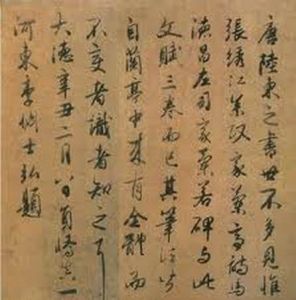 唐陸柬之書世不多見惟
張綉江參政家蘭亭詩馬
德昌左司家蘭若碑與此
文賦三卷而已其筆法皆
自蘭亭中來有全體而
不變者識者知之耳
大德辛丑二月八日員嶠真一
河東李倜士弘題